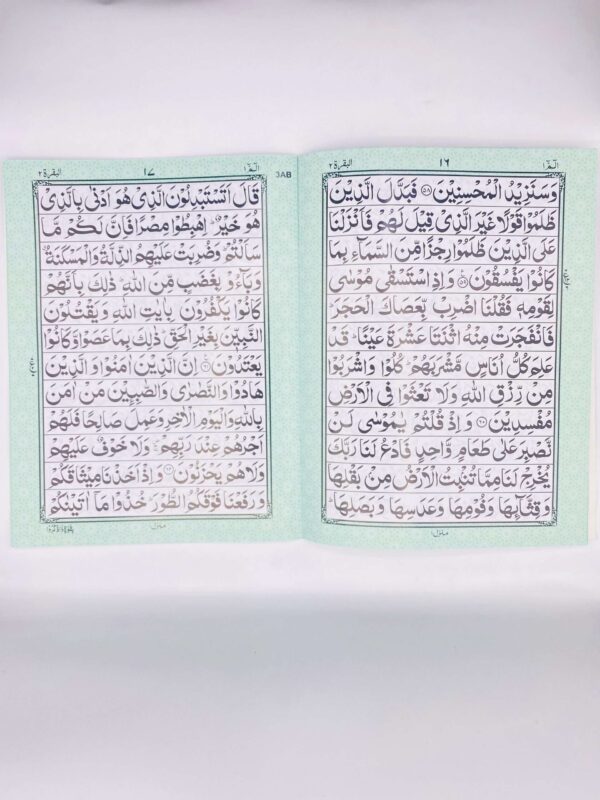 الٓمّٓ ١
١٦
البقرة ٢
وَسَنَزِيْدُ الْمُحْسِنِيْنَ ﴿٥٨﴾ فَبَدَّلَ الَّذِيْنَ
ظَلَمُوْا قَوْلًا غَيْرَ الَّذِيْ قِيْلَ لَهُمْ فَاَنْزَلْنَا
عَلَى الَّذِيْنَ ظَلَمُوْا رِجْزًا مِّنَ السَّمَآءِ بِمَا
كَانُوْا يَفْسُقُوْنَ ﴿٥٩﴾ وَاِذِ اسْتَسْقٰى مُوْسٰى
لِقَوْمِهٖ فَقُلْنَا اضْرِبْ بِّعَصَاكَ الْحَجَرَ ؕ
فَانْفَجَرَتْ مِنْهُ اثْنَتَا عَشْرَةَ عَيْنًا ؕ قَدْ
عَلِمَ كُلُّ اُنَاسٍ مَّشْرَبَهُمْ ؕ كُلُوْا وَاشْرَبُوْا
مِنْ رِّزْقِ اللّٰهِ وَلَا تَعْثَوْا فِى الْاَرْضِ
مُفْسِدِيْنَ ﴿٦٠﴾ وَاِذْ قُلْتُمْ يٰمُوْسٰى لَنْ
نَّصْبِرَ عَلٰى طَعَامٍ وَّاحِدٍ فَادْعُ لَنَا رَبَّكَ
يُخْرِجْ لَنَا مِمَّا تُنْۢبِتُ الْاَرْضُ مِنْۢ بَقْلِهَا
وَقِثَّآئِهَا وَفُوْمِهَا وَعَدَسِهَا وَبَصَلِهَا ؕ
منزل ١
3AB
١٧
البقرة ٢
الٓمّٓ ١
قَالَ اَتَسْتَبْدِلُوْنَ الَّذِيْ هُوَ اَدْنٰى بِالَّذِيْ
هُوَ خَيْرٌ ؕ اِهْبِطُوْا مِصْرًا فَاِنَّ لَكُمْ مَّا
سَاَلْتُمْ ؕ وَضُرِبَتْ عَلَيْهِمُ الذِّلَّةُ وَالْمَسْكَنَةُ ۗ
وَبَآءُوْ بِغَضَبٍ مِّنَ اللّٰهِ ؕ ذٰلِكَ بِاَنَّهُمْ
كَانُوْا يَكْفُرُوْنَ بِاٰيٰتِ اللّٰهِ وَيَقْتُلُوْنَ
النَّبِيّٖنَ بِغَيْرِ الْحَقِّ ؕ ذٰلِكَ بِمَا عَصَوْا وَّكَانُوْا
يَعْتَدُوْنَ ﴿٦١﴾ اِنَّ الَّذِيْنَ اٰمَنُوْا وَالَّذِيْنَ
هَادُوْا وَالنَّصٰرٰى وَالصّٰبِـِٕيْنَ مَنْ اٰمَنَ
بِاللّٰهِ وَالْيَوْمِ الْاٰخِرِ وَعَمِلَ صَالِحًا فَلَهُمْ
اَجْرُهُمْ عِنْدَ رَبِّهِمْ ۪ وَلَا خَوْفٌ عَلَيْهِمْ
وَلَا هُمْ يَحْزَنُوْنَ ﴿٦٢﴾ وَاِذْ اَخَذْنَا مِيْثَاقَكُمْ
وَرَفَعْنَا فَوْقَكُمُ الطُّوْرَ ؕ خُذُوْا مَآ اٰتَيْنٰكُمْ
منزل ١